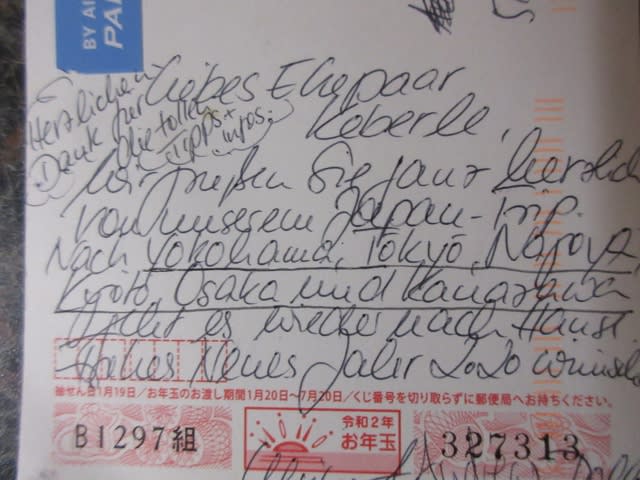 BY AI
PA
Herzlichen
Dank für
die tollen
Tipps +
Infos.
Liebes Ehepaar
Köberle,
wir grüßen Sie ganz herzlich
von unserem Japan-Trip.
Nach Yokohama, Tokyo, Nagoya,
Kyoto, Osaka und Kanazawa
geht es wieder nach Hause
Neues Jahr 2020
抽せん日1月19日／お年玉のお渡し期間1月20日〜7月20日／くじ番号を切り取らずに郵便局へお持ちください。
B1297組
令和2年
お年玉
327313